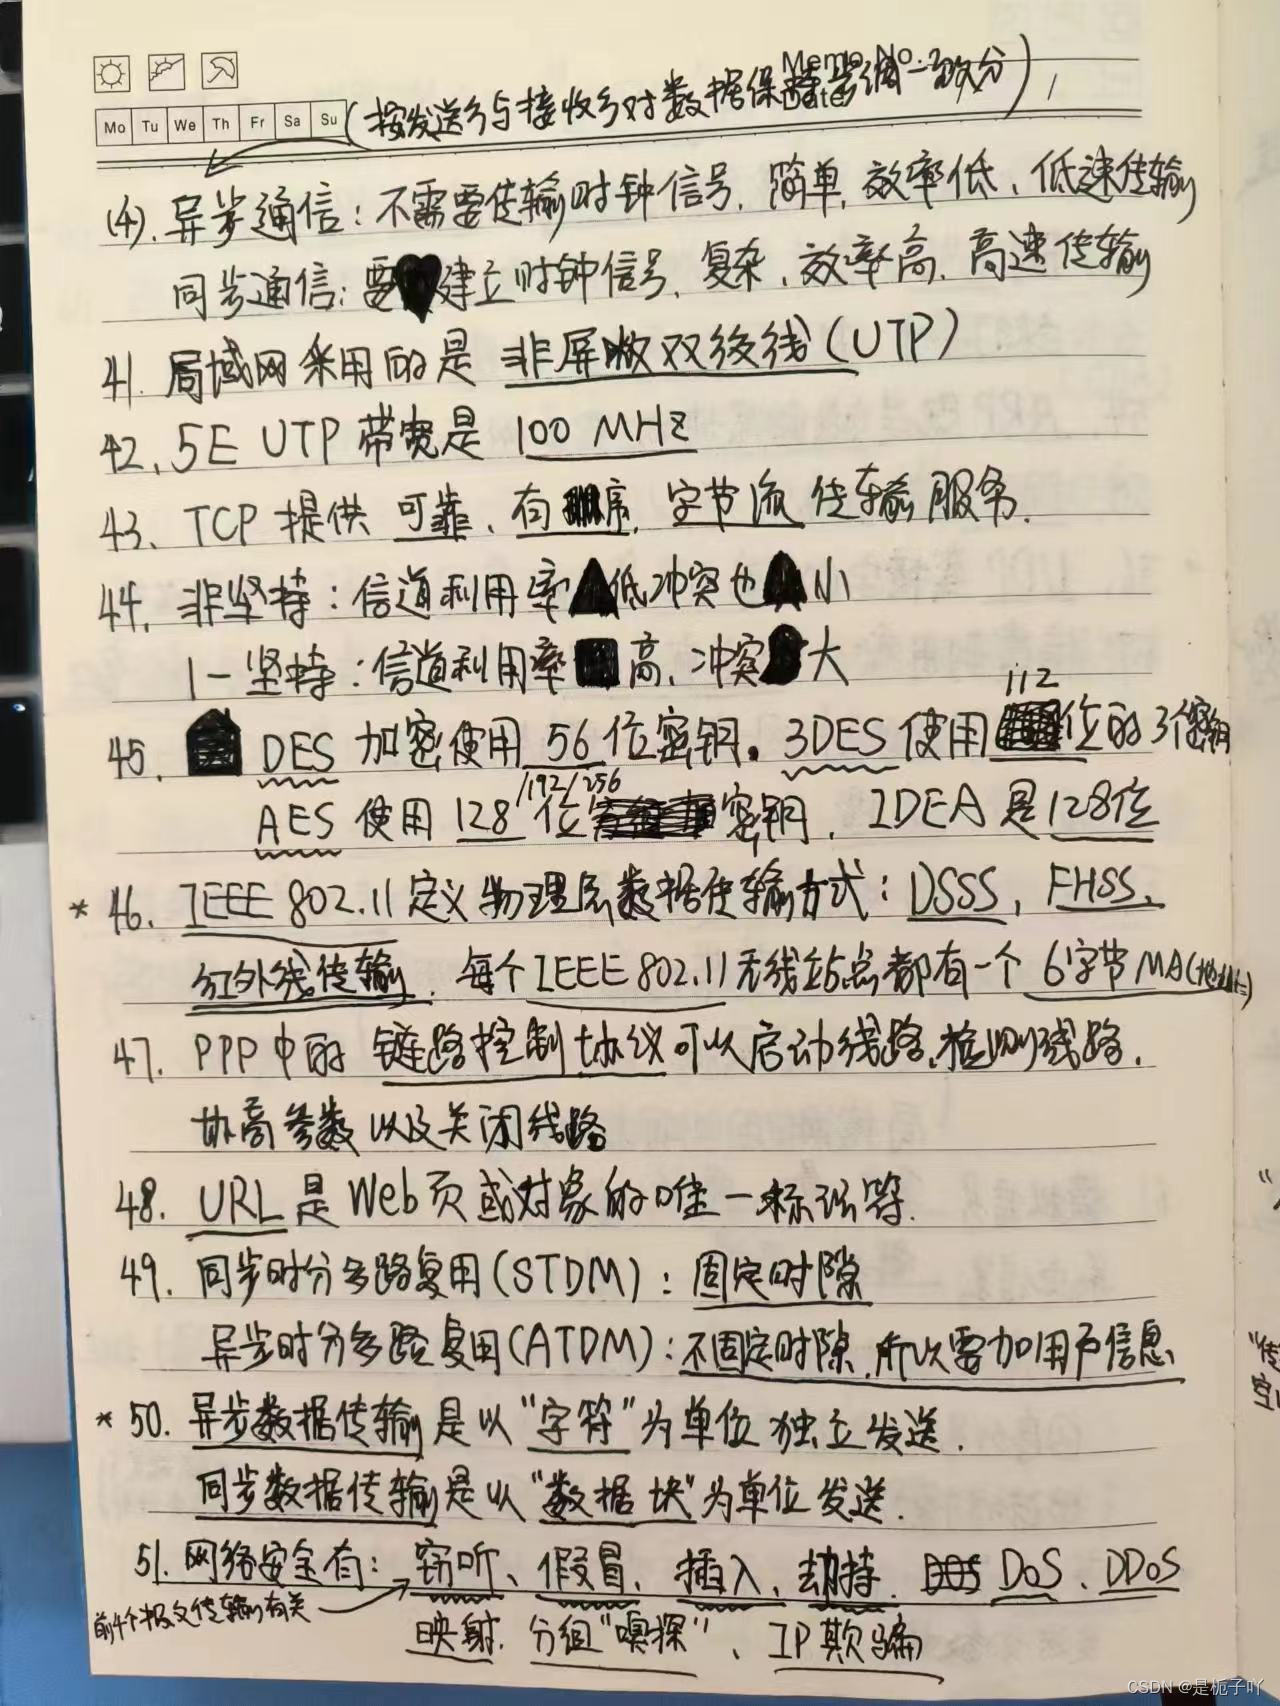 Memo No.
Date
Mo Tu We Th Fr Sa Su
(按发送方与接收方对数据保持步调一致分)
(4). 异步通信：不需要传输时钟信号，简单，效率低、低速传输
同步通信：要建立时钟信号，复杂，效率高，高速传输
41. 局域网采用的是 非屏蔽双绞线(UTP)
42、5E UTP 带宽是 100 MHZ
43、TCP 提供 可靠、有序，字节流 传输服务.
44. 非坚持：信道利用率低冲突也小
1-坚持：信道利用率高，冲突大
112
45. DES 加密使用 56 位密钥。3DES 使用位的3个密钥
/192/256
AES 使用 128 位密钥，IDEA 是128位
* 46. IEEE 802.11定义物理层数据传输方式：DSSS，FHSS、
红外线传输，每个IEEE 802.11无线站点都有一个 6字节MAC地址
47. PPP中的 链路控制协议可以启动线路、检测线路，
协商参数以及关闭线路
48. URL 是Web页或对象的唯一标识符.
49. 同步时分多路复用(STDM)：固定时隙
异步时分多路复用(ATDM)：不固定时隙，所以需加用户信息
* 50. 异步数据传输是以"字符"为单位独立发送.
同步数据传输是以"数据块"为单位发送.
51. 网络安全有：窃听、假冒、插入、劫持、DoS、DDoS
前4个报文传输有关
映射，分组"嗅探"、IP欺骗
CSDN @是栀子吖